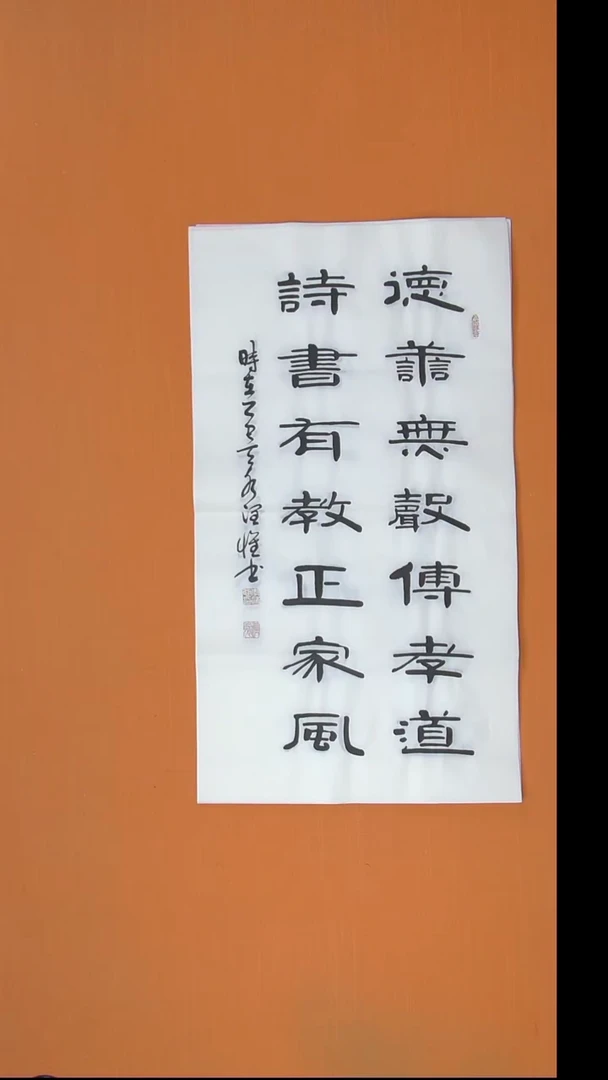 德善無聲傳孝道
詩書有教正家風
時在乙巳
書